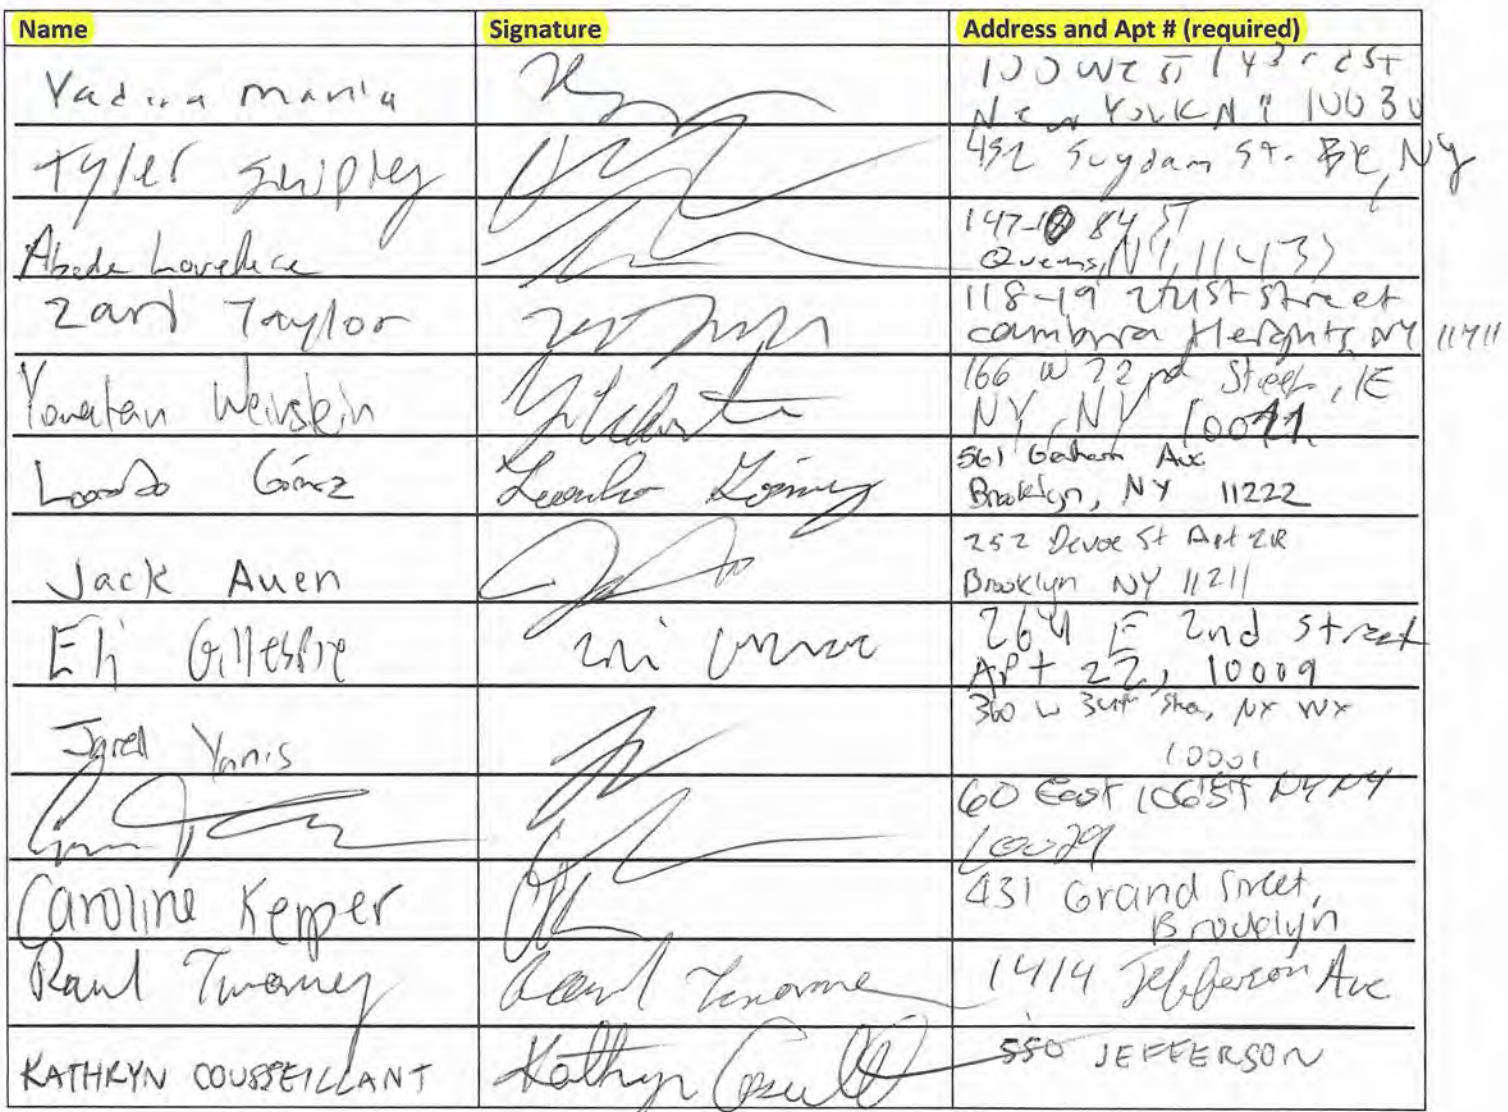 Name Signature Address and Apt # (required)
Yadira Maria
100 West 143rd St
New York NY 10030
Tyler Shipley
452 Suydam St. BK, NY
Lovelace
147-10 84 ST
Queens, NY, 11435
Taylor
118-19 Street
Cambria Heights, NY 11411
Yonatan Weinstein
166 W 22nd Street, 1E
NY, NY 10011
Gómez Leandro Gómez
561 Graham Ave
Brooklyn, NY 11222
Jack Auen
252 Devoe St Apt 2R
Brooklyn NY 11211
Eli Gillespie
264 E 2nd Street
Apt 2Z, 10009
Jared Yanis
360 W 34th
10001
60 East 106 ST NY NY
10029
Caroline Kepper
431 Grand Street,
Brooklyn
Raul Twomey
1414 Jefferson Ave
KATHRYN COUSSEILLANT Kathryn
550 JEFFERSON